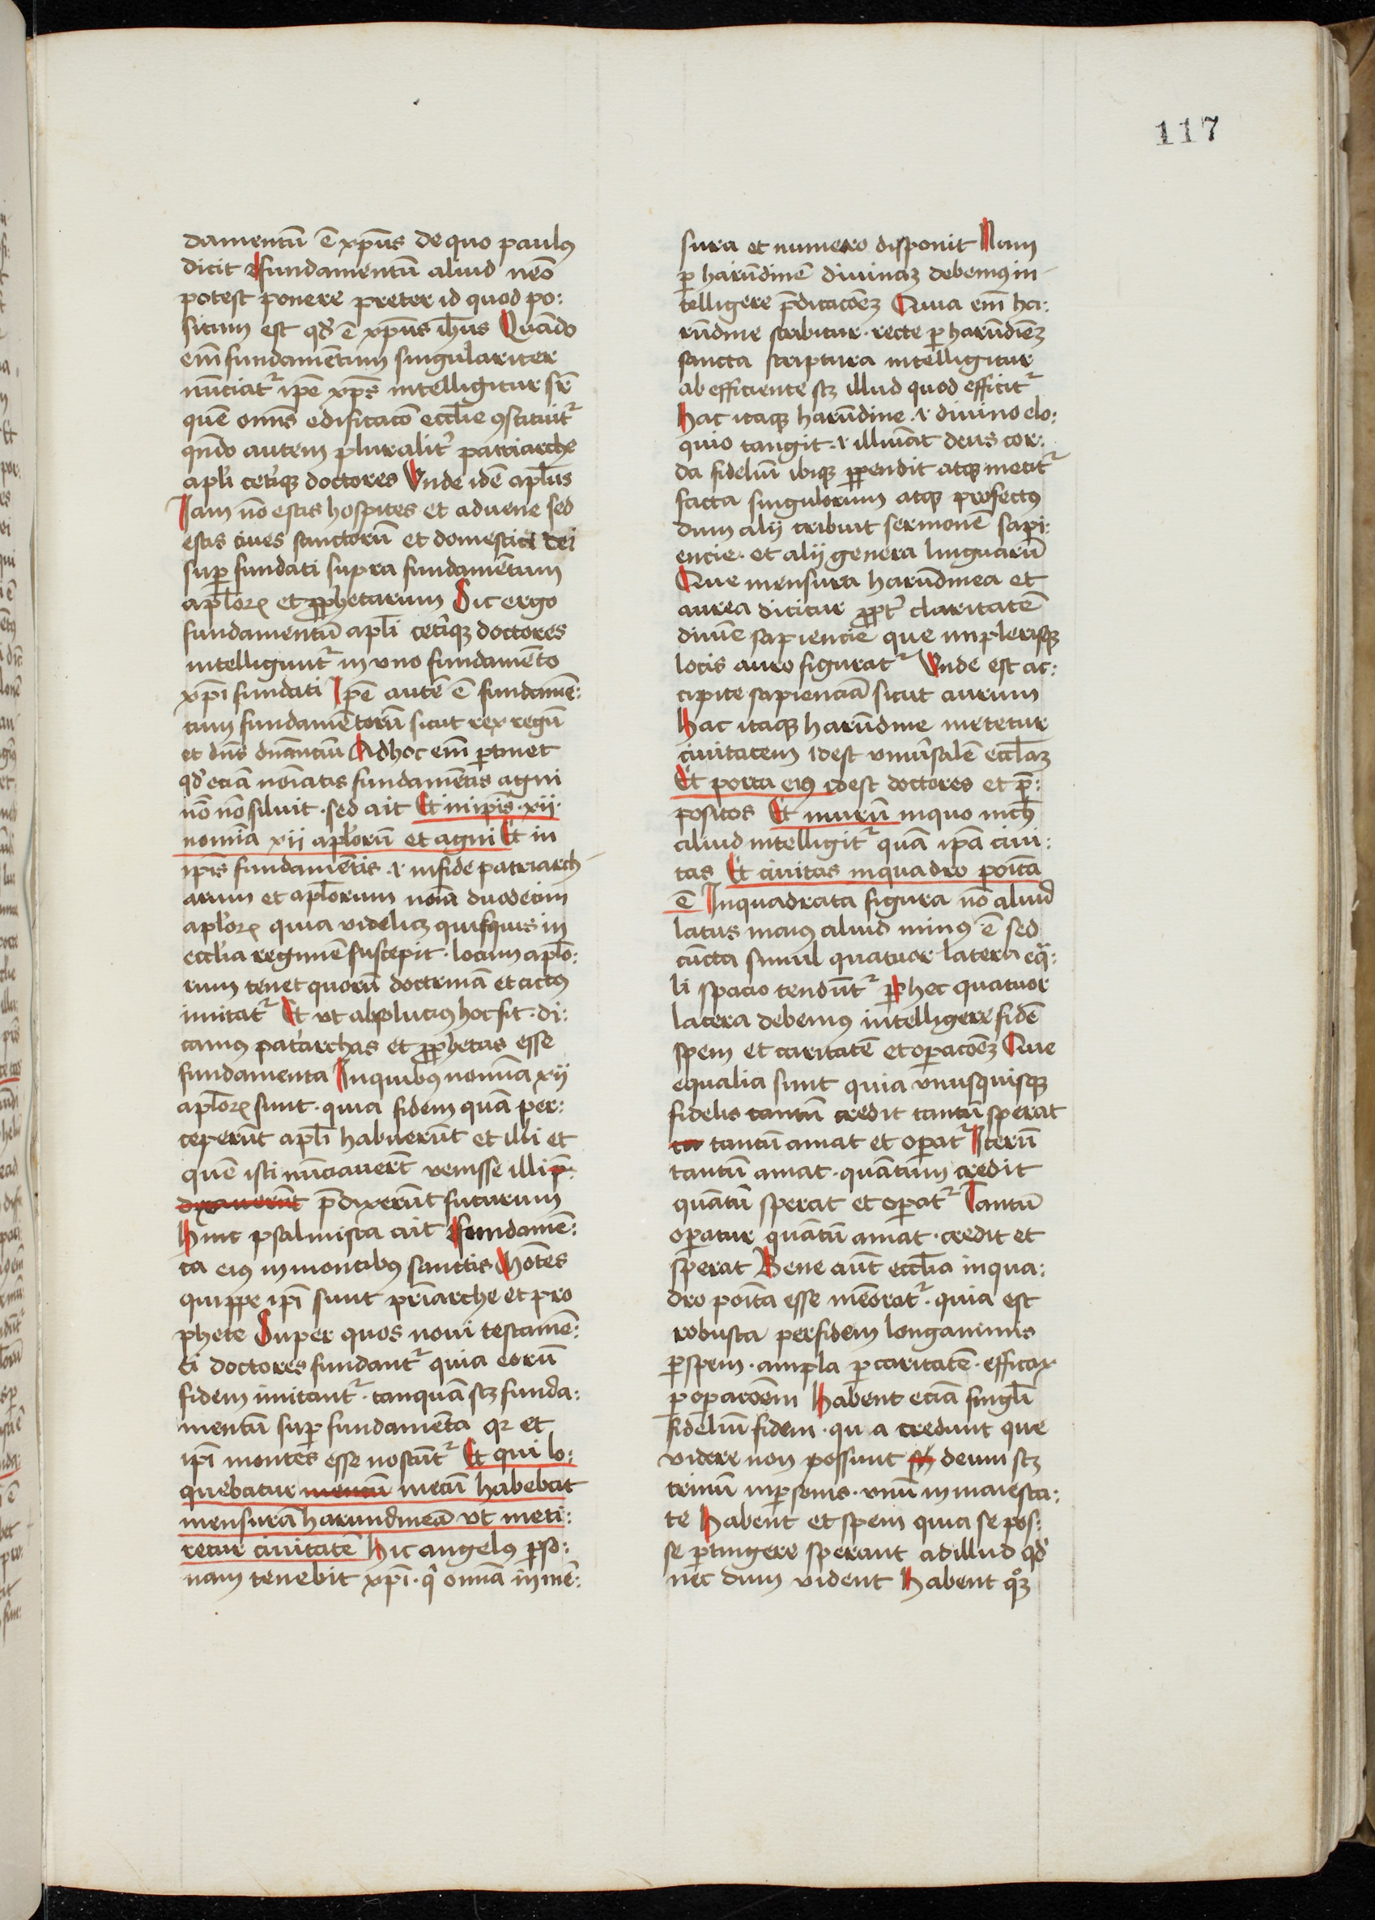 117
damentū ē xp̄us de quo paulus
dicit Fundamentū aliud nēo
potest ponere preter id quod po:
situm est qd' ē xp̄us ih̄us Quādo
em̄ fundamentum singulariter
nūciat᷑ ip̄e xp̄s intelligitur sr̄
quē om̄is edificacō eccl̄ie ꝯstituit᷑
qn̄do autem pluralit̾ patriarche
apl̄i cet̾iqꝫ doctores Vnde idē apl̄us
Iam nō estis hospites et aduene sed
estis ciues sanctorū et domestici dei
suꝑ fundati supra fundamentum
apl̄oꝝ et ꝓphetarum Sic ergo
fundamentū apl̄i cet̾iqꝫ doctores
intelligunt᷑ in vno fundamento
xp̄i fundati Ip̄e autē ē fundamē:
tum fundamentorū sicut rex regū
et dn̄s dn̄anciū Ad hoc em̄ ꝑtinet
qd' eciā noīatis fundamētis agni
nō nō siluit · sed ait Et in ip̄is · xii ·
nomīa xii apl̄orū et agni Et in
ip̄is fundamentis · i · in fide patriarch
arum et apl̄orum noīa duodecim
apl̄oꝝ quia videlicꝫ quisquis in
eccl̄ia regimē suscepit · locum apl̄o:
rum tenet quorū doctrinā et actus
imitat᷑ Et vt absolucius hoc sit · di:
camus pat̾archas et ꝓphetas esse
fundamenta In quibus nomīa xii
apl̄oꝝ sunt · quia fidem quā per:
ceperūt apl̄i habuerūt et illi et
quē isti nūciauerūt venisse illi p̄
dixauerūt p̄dixerūt futurum
Hinc psalmista ait Fundamē:
ta eius in montibus sanctis Mōtes
quippe ip̄i sunt pr̄iarche et pro
phete Super quos noui testamē:
ti doctores fundant᷑ quia eorū
fidem imitant᷑ · tanquā scꝫ funda:
mentū suꝑ fundamēta qꝛ et
ip̄i montes esse noscūt᷑ Et qui lo:
quebatur mencū mecū habebat
mensurā harundineā vt meti:
retur ciuitatē Hic angelus ꝑso:
nam tenebit xp̄i · qͥ omnia in mē:
sura et numero disponit Nam
ꝑ harūdinē diuinaꝫ debemus in
telligere p̄dicacōeꝫ Quia em̄ ha:
rūdine scribitur · recte ꝑ harūdīeꝫ
sancta scriptura intelligitur
ab efficiente scꝫ illud quod efficit᷑
Hac itaqꝫ harūdine · i · diuino elo:
quio tangit · i · illuīat deus cor:
da fidelium ibiqꝫ ꝑpendit atqꝫ metit᷑
facta singulorum atqꝫ profectus
dum alij tribuit sermonē sapi:
encie · et alij genera linguarū
Que mensura harūdinea et
aurea dicitur ꝓpt̾ claritatē
diuīe sapiencie que in plerisqꝫ
locis auro figurat᷑ Vnde est ac:
cipite sapienciā sicut aurum
Hac itaqꝫ harūdine metetur
ciuitatem idest vniu̾salē eccl̄iaꝫ
Et porta eius idest doctores et p̄:
positos Et murū in quo nich̄
aliud intelligit᷑ quā ip̄a ciui:
tas Et ciuitas in quadro poīta
ē In quadrata figura nō aliud
latus maius aliud minus ē sed
cūcta simul quatuor latera eq̄:
li spacio tendūt᷑ Per hec quatuor
latera debemus intelligere fidē
spem et caritatē et oꝑacōeꝫ Que
equalia sunt quia vnusquisqꝫ
fidelis tantū credit tantū sperat
ta tantū amat et oꝑat᷑ Iterū
tantū amat · quātum credit
quātū sperat et oꝑat᷑ Tantū
oꝑatur quātū amat · credit et
sperat Bene aūt eccl̄ia in qua:
dro poīta esse mēorat᷑ · quia est
robusta per fidem longanimis
ꝑ spem · ampla ꝑ caritatē · efficax
ꝑ oꝑacōem Habent eciā singl̄i
fideliū fidem · qu a credunt que
videre non possunt deum scꝫ
trinū in ꝑsonis · vnū in maiesta:
te Habent et spem quia se pos:
se ꝑtingere sperant ad illud qd'
nec dum vident Habent qͦꝫ